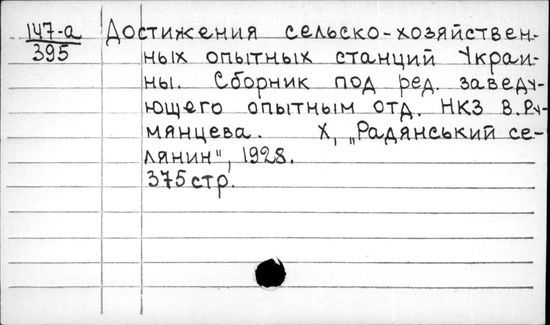 147-а
395
Достижения сельско-хозяйствен-
ных опытных станций Украи-
ны. Сборник под ред. заведу-
ющего опытным отд. НКЗ В. Ру-
мянцева. Х, „Радянський се-
лянин", 1928.
375 стр.